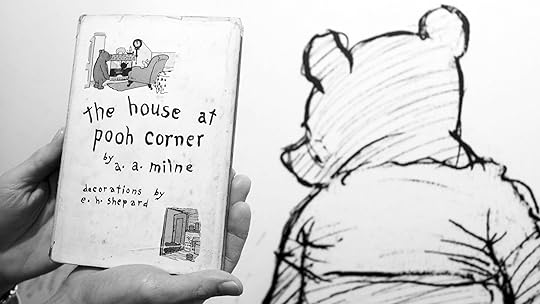 the house at
pooh corner
by
a. a. milne
decorations by
e. h. shepard